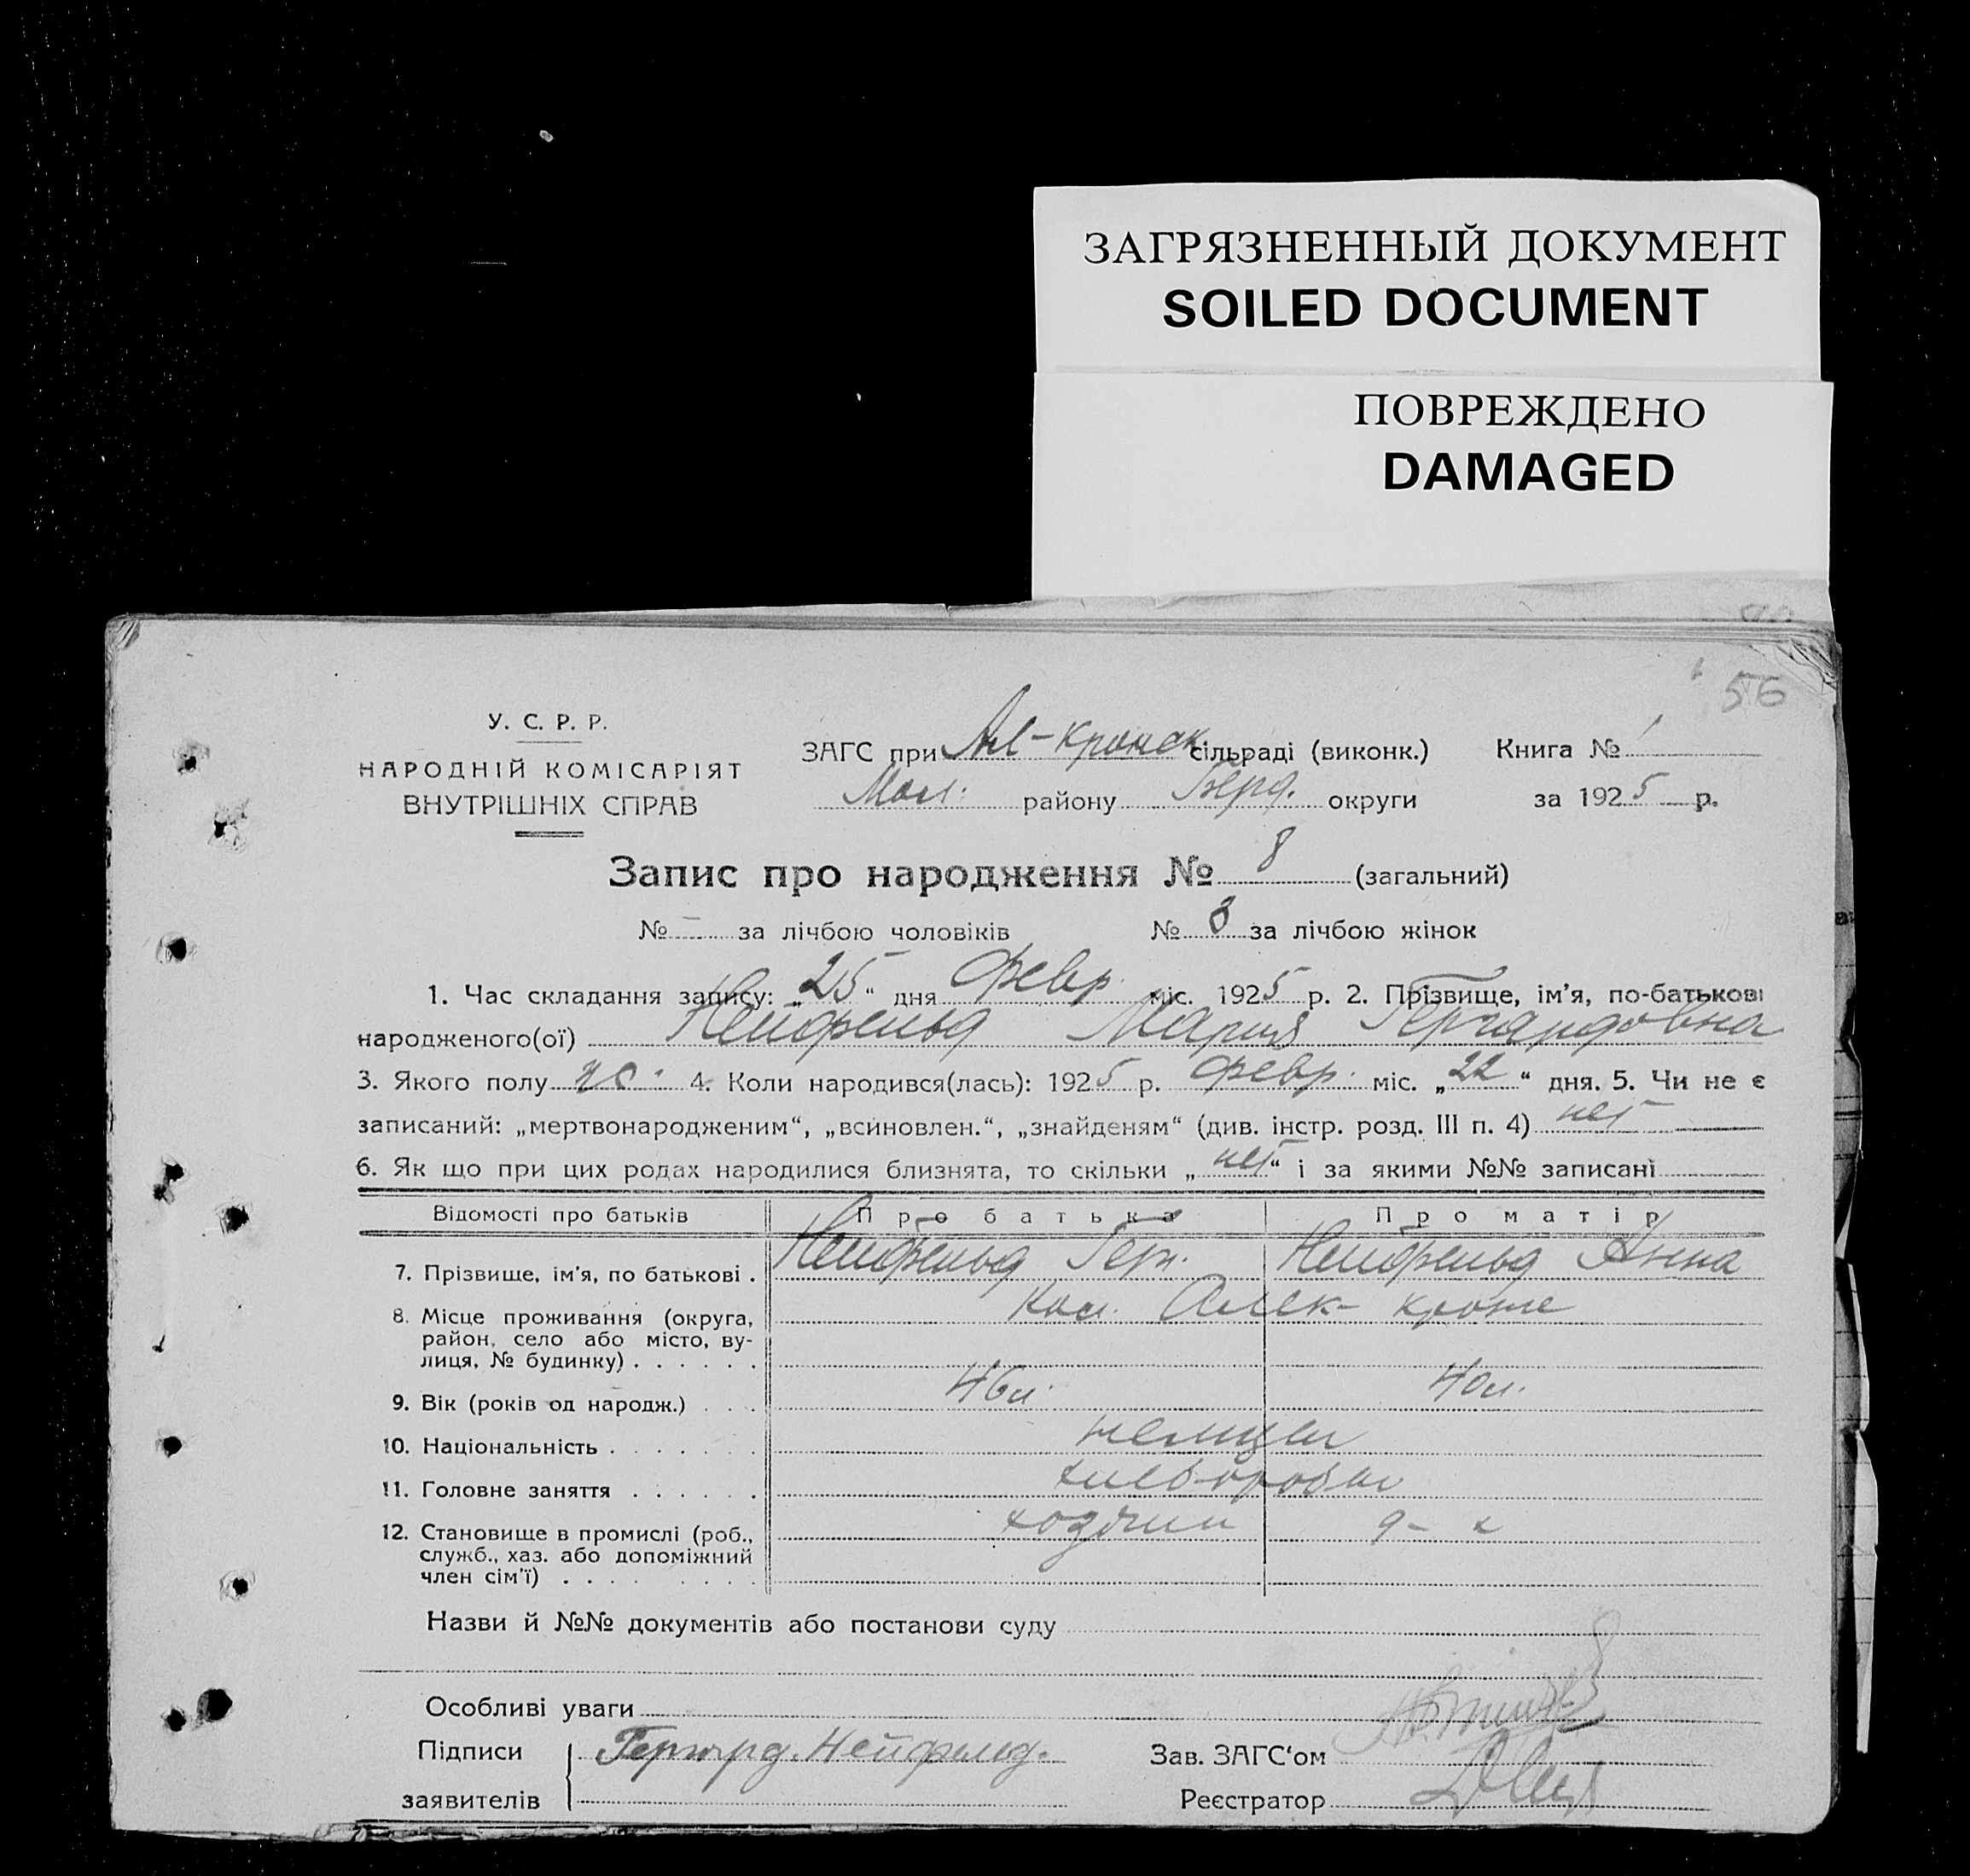 ЗАГРЯЗНЕННЫЙ ДОКУМЕНТ
SOILED DOCUMENT
ПОВРЕЖДЕНО
DAMAGED
56
У. С. Р. Р.
НАРОДНІЙ КОМІСАРІЯТ
ВНУТРІШНІХ СПРАВ
ЗАГС при Ал-Кронск. сільраді (виконк.) Книга № 1
Мол. району Берд. округи за 1925 р.
Запис про народження № 8 (загальний)
№ – за лічбою чоловіків № 8 за лічбою жінок
1. Час складання запису: „25“ дня февр. міс. 1925 р. 2. Прізвище, ім'я, по-батькові
народженого(ої) Нейфельд Мария Гергардовна
3. Якого полу ж. 4. Коли народився(лась): 1925 р. февр. міс. „22“ дня. 5. Чи не є
записаний: „мертвонародженим“, „всиновлен.“, „знайденям“ (див. інстр. розд. III п. 4) нет
6. Як що при цих родах народилися близнята, то скільки „нет“ і за якими №№ записані
Відомості про батьків Про батька Про матір
7. Прізвище, ім'я, по батькові . Нейфельд Гер. Нейфельд Анна
8. Місце проживання (округа, Кол. Алек- кроне
район, село або місто, ву-
лиця, № будинку) . . . . . .
9. Вік (років од народж.) . . . 46 л. 40 л.
10. Національність . . . . . . . немцы
11. Головне заняття . . . . . . хлеборобы
12. Становище в промислі (роб.,
служб., хаз. або допоміжний
член сім'ї) . . . . . . . . .
Назви й №№ документів або постанови суду
Особливі уваги
Підписи Гергард. Нейфельд. Зав. ЗАГС‘ом
заявителів Реєстратор